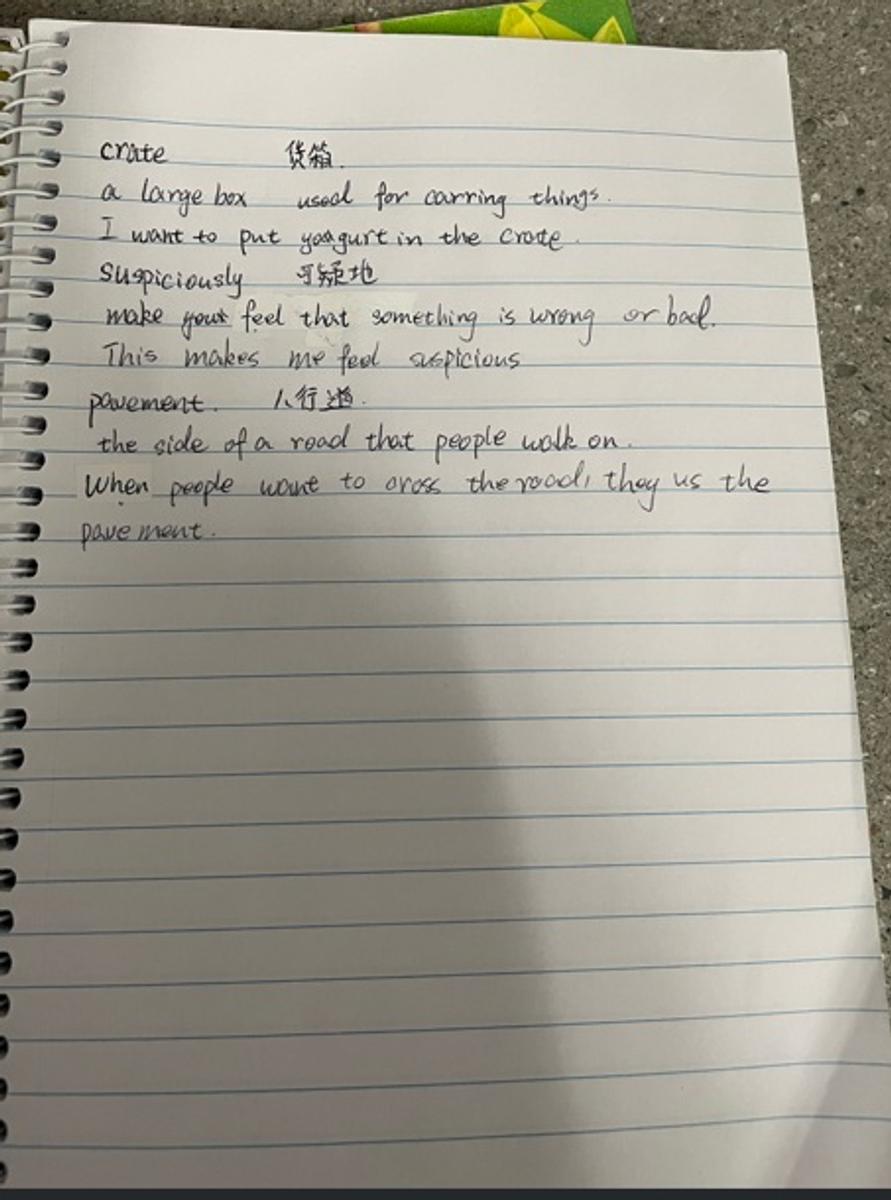 crate 货箱.
a large box used for carring things.
I want to put yoagurt in the crate.
suspiciously 可疑地
make your feel that something is wrong or bad.
This makes me feel suspicious
pavement. 人行道.
the side of a road that people walk on.
When people want to cross the road, they us the
pavement.